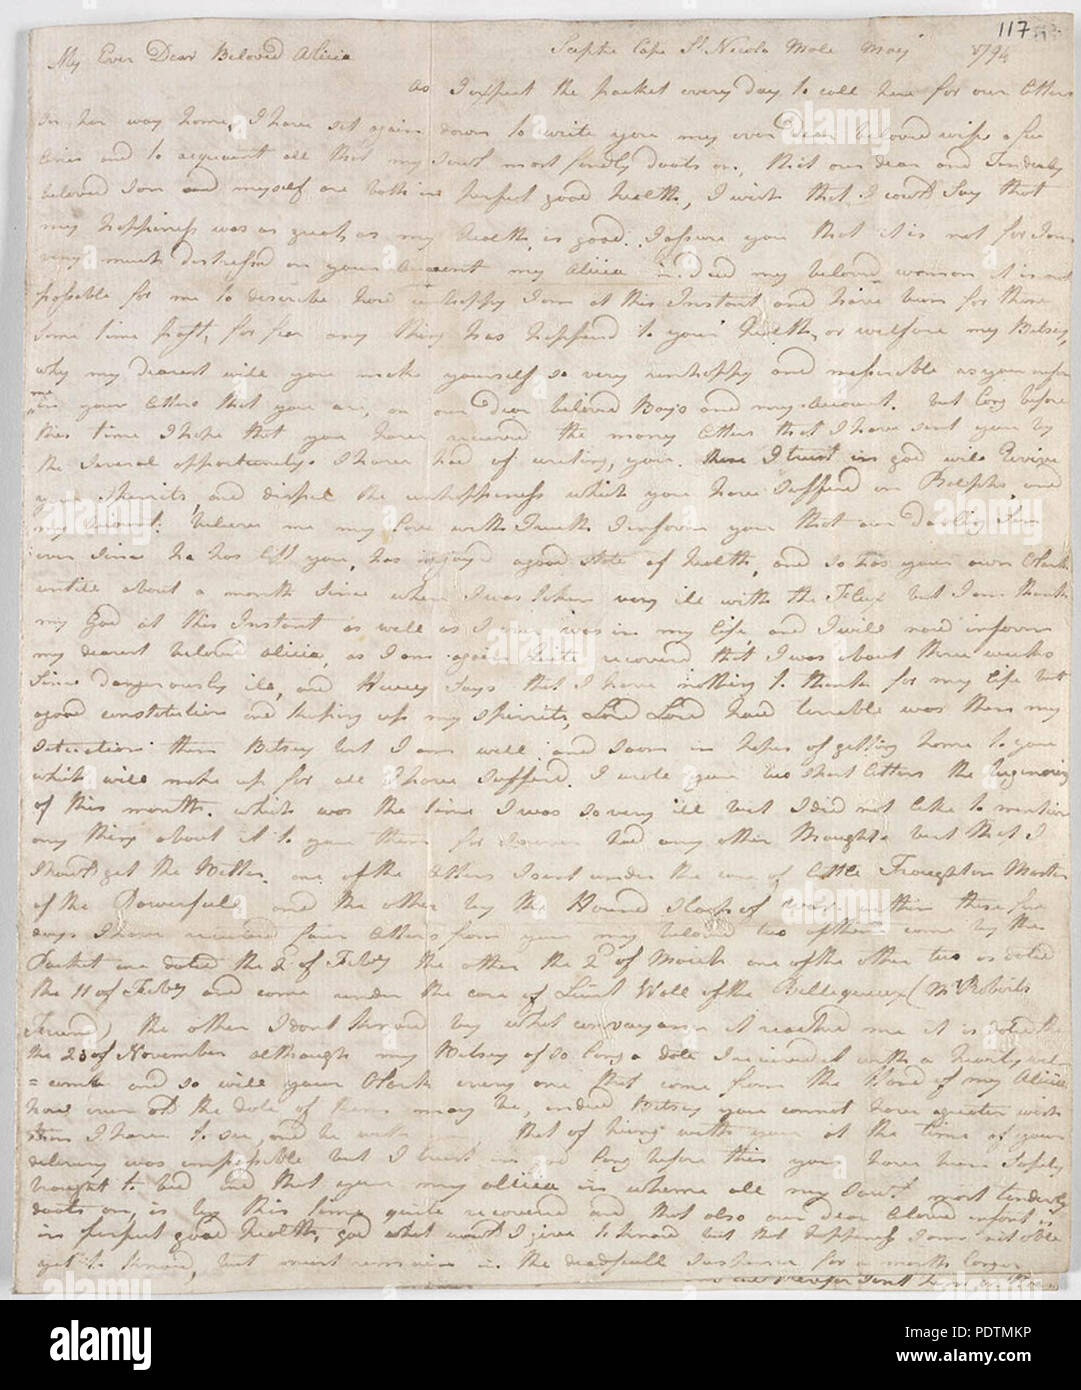 117
My Ever Dear Beloved Alicia Sceptre Cape St Nicola Mole May 1794
as I expect the packet every day to call here for our letters
in her way home, I have set again down to write you my ever dear beloved wife a few
lines and to acquaint all that my soul most fondly doats on, that our dear and tenderly
beloved Son and myself are both in perfect good health, I wish that I could Say that
my happiness was as great as my health is good. I assure you that it is not for I am
very much distressed on your Account my Alicia indeed my beloved woman it is not
possible for me to describe how unhappy I am at this Instant and have been for these
some time past, for fear any thing has happend to your health, or welfare my Betsey,
why my dearest will you make yourself so very unhappy and miserable as you inform
me in your letters that you are, on our dear beloved Boys and my Account. but long before
this time I hope that you have received the money letters that I have sent you by
the several opportunitys I have had of writing you. these I trust in god will revive
your spirrits, and dispel the unhappiness which you have suffered on Ralphs, and
my Account: believe me my love with Truth I inform you that our Darling Son
ever since he has left you, has injoyd a good state of health, and so has your own Clark
untill about a month since when I was taken very ill with the Flux but I am thank
my God at this Instant as well as I ever was in my life and I will now inform
my dearest beloved Alicia, as I am again quite recovered that I was about three weeks
since dangerously ill, and says that I have nothing to thank for my life but
a good constitution and keeping up my spirrits, Lord Lord how terrable was then my
setuation then Betsey but I am well and soon in hopes of getting home to you
which will make up for all I have suffered. I wrote you two short letters the beginning
of this month. which was the time I was so very ill but I did not like to mention
any thing about it to you then for I never had any other thoughts but that I
should get the better. one of the letters I sent under the care of little Troughton Master
of the Powerfull and the other by the Hound Sloop of within these few
days I have received four letters from you my beloved two of them come by the
Packet one dated the 2d of Feby the other the 2d of March one of the other two is dated
the 11 of Feby and come under the care of Lieut Wall of the Bellequeux (Mr Roberts
Friend) the other I dont know by what convayance it reached me it is dated the
the 23 of November although my Betsey of so long a date I received it with a hearty wel-
=come and so will your Clark every one that come from the Hand of my Alicia
how ever old the date of them may be, indeed Betsey you cannot have a greater wish
than I have to see, and be with you, that of being with you at the time of your
delivery was impossible but I trust in god long before this you have been safely
brought to bed and that you my Alicia in whome all my soul most tenderly
doats on, is by this time quite recovered and that also our dear beloved infant is
in perfect good health, god what would I give to know but that happiness I am not able
yet to know, but must remain in the deadfull suspense for a month longer
alamy
Image ID: PDTMKP
www.alamy.com